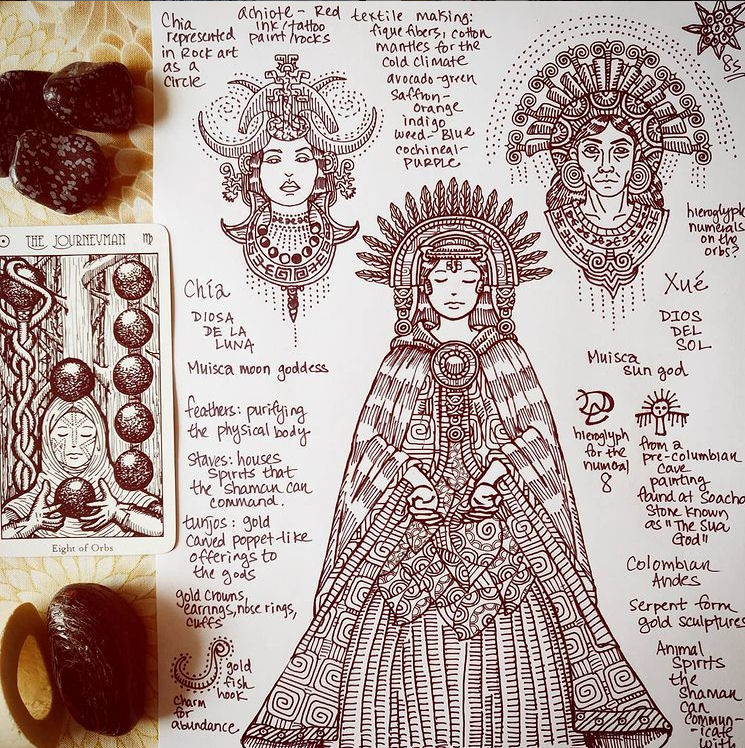 Chia
represented
in Rock art
as a
Circle
achiote - Red
ink/tattoo
paint/rocks
textile making:
fique fibers, cotton
mantles for the
cold climate
avocado-green
saffron-
orange
indigo
weed-Blue
cochineal-
purple
8s
hieroglyphic
numerals
on the
orbs?
THE JOURNEYMAN
Eight of Orbs
Chía
DIOSA
DE LA
LUNA
Muisca moon goddess
feathers: purifying
the physical body
staves: houses
spirits that
the shaman can
command.
tunjos: gold
carved poppet-like
offerings to
the gods
gold crowns,
earrings, nose rings,
cuffs
gold
fish
hook
charm
for
abundance
Xué
DIOS
DEL
SOL
Muisca
sun god
hieroglyph
for the
numeral
8
from a
pre-columbian
cave
painting
found at Soacha
Stone known
as "The Sua
God"
Colombian
Andes
Serpent form
gold sculptures
Animal
Spirits
the
Shaman
can
commun-
icate
with